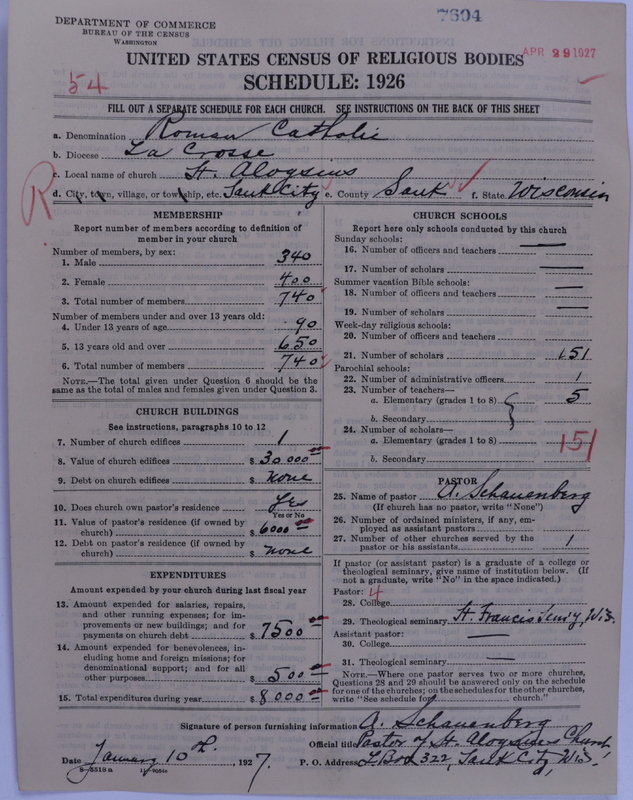 7694
DEPARTMENT OF COMMERCE
BUREAU OF THE CENSUS
WASHINGTON
APR 29 1927
UNITED STATES CENSUS OF RELIGIOUS BODIES
54
SCHEDULE: 1926
FILL OUT A SEPARATE SCHEDULE FOR EACH CHURCH. SEE INSTRUCTIONS ON THE BACK OF THIS SHEET
a. Denomination Roman Catholic
b. Diocese La Crosse
c. Local name of church St. Aloysius
R
d. City, town, village, or township, etc. Sauk City e. County Sauk f. State Wisconsin
MEMBERSHIP
Report number of members according to definition of
member in your church
Number of members, by sex:
1. Male 340
2. Female 400
3. Total number of members 740
Number of members under and over 13 years old:
4. Under 13 years of age 90
5. 13 years old and over 650
6. Total number of members 740
NOTE.—The total given under Question 6 should be
same as the total of males and females given under Question 3.
CHURCH BUILDINGS
See instructions, paragraphs 10 to 12
7. Number of church edifices 1
8. Value of church edifices $ 30000
9. Debt on church edifices $ none
10. Does church own pastor's residence Yes
Yes or No
11. Value of pastor's residence (if owned by
church) $ 6000
12. Debt on pastor's residence (if owned by
church) $ none
EXPENDITURES
Amount expended by your church during last fiscal year
13. Amount expended for salaries, repairs,
and other running expenses; for im-
provements or new buildings; and for
payments on church debt $ 7500
14. Amount expended for benevolences, in-
cluding home and foreign missions; for
denominational support; and for all
other purposes $ 500
15. Total expenditures during year $ 8000
CHURCH SCHOOLS
Report here only schools conducted by this church
Sunday schools:
16. Number of officers and teachers
17. Number of scholars
Summer vacation Bible schools:
18. Number of officers and teachers
19. Number of scholars
Week-day religious schools:
20. Number of officers and teachers
21. Number of scholars 151
Parochial schools:
22. Number of administrative officers 1
23. Number of teachers—
a. Elementary (grades 1 to 8) 5
b. Secondary
24. Number of scholars—
a. Elementary (grades 1 to 8) 151
b. Secondary
PASTOR
25. Name of pastor A. Schauenberg
(If church has no pastor, write "None")
26. Number of ordained ministers, if any, em-
ployed as assistant pastors
27. Number of other churches served by the
pastor or his assistants 1
If pastor (or assistant pastor) is a graduate of a college or
theological seminary, give name of institution below. (If
not a graduate, write "No" in the space indicated.)
Pastor: 4
28. College
29. Theological seminary St. Francis Sem'y, Wis.
Assistant pastor:
30. College
31. Theological seminary
NOTE.—Where one pastor serves two or more churches,
Questions 28 and 29 should be answered only on the schedule
for one of the churches; on the schedules for the other churches,
write "See schedule for church."
Signature of person furnishing information A. Schauenberg
Official title Pastor of St. Aloysius Church
Date January 10th, 1927. P. O. Address L Box 322, Sauk City, Wis.